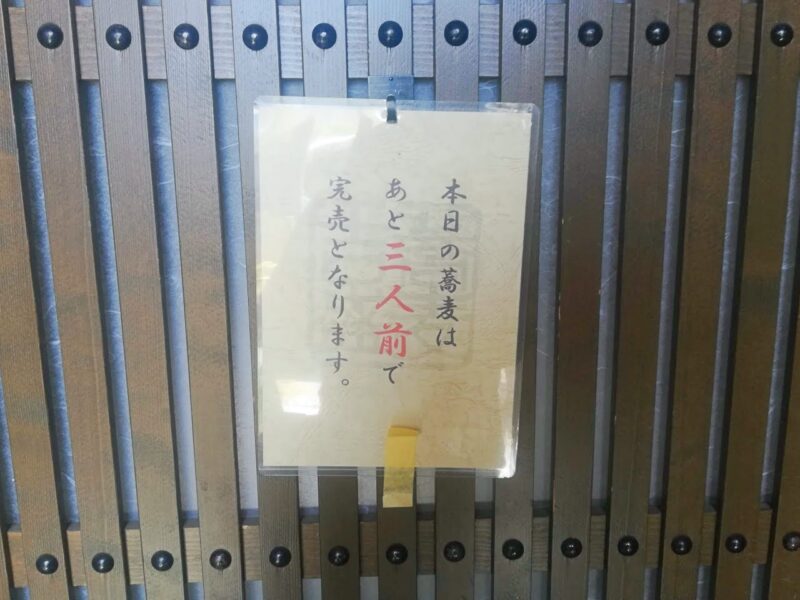 本日の蕎麦は
あと三人前で
完売となります。